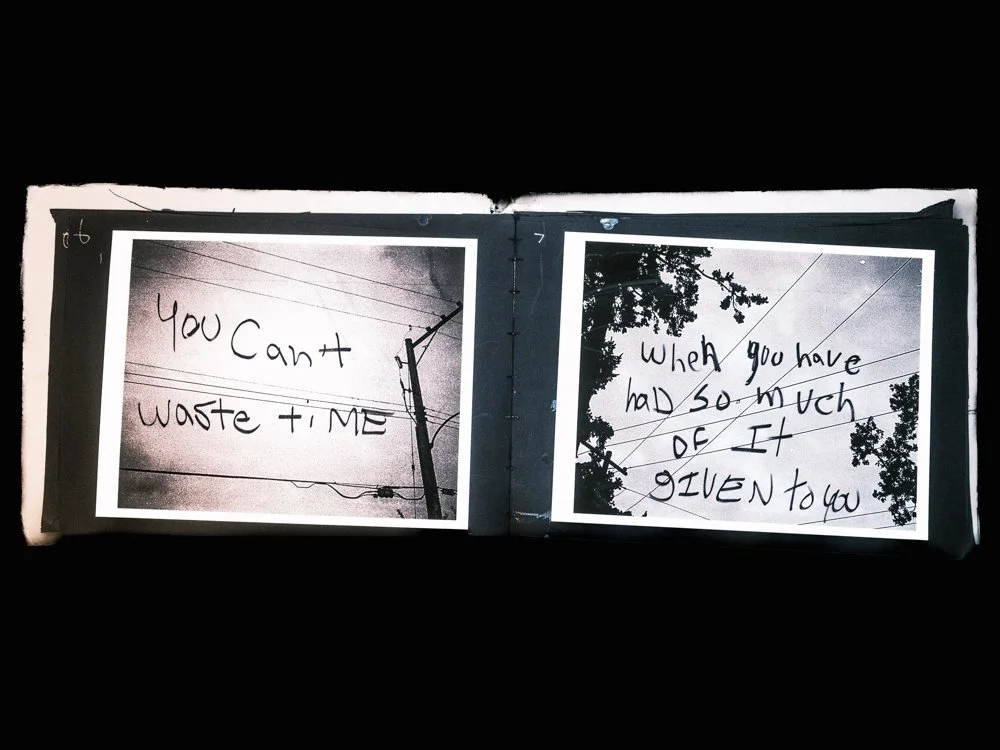 you Can't
waste tiME
when you have
haD so much
OF It
gIVEN to you